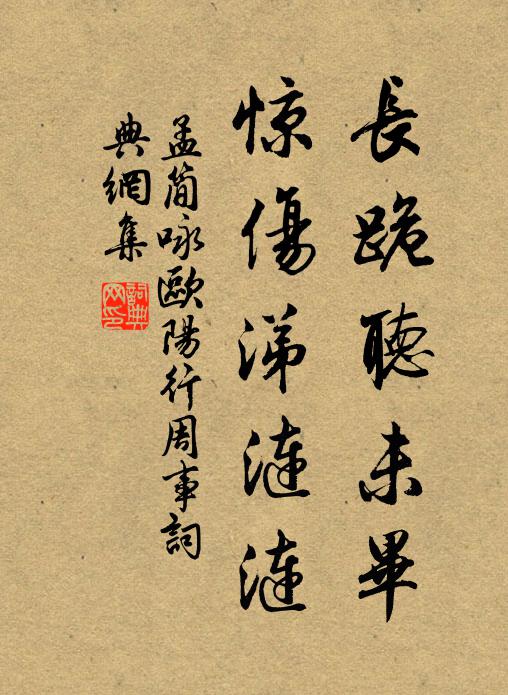 長跪聽未畢
惊傷涕漣漣
孟簡咏歐陽行周事詞
典網集
詞典網印